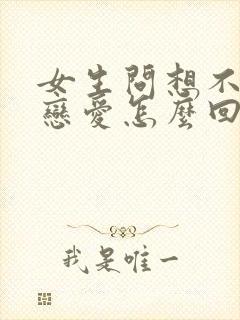 女生問想不
戀愛怎麼回
我是唯一